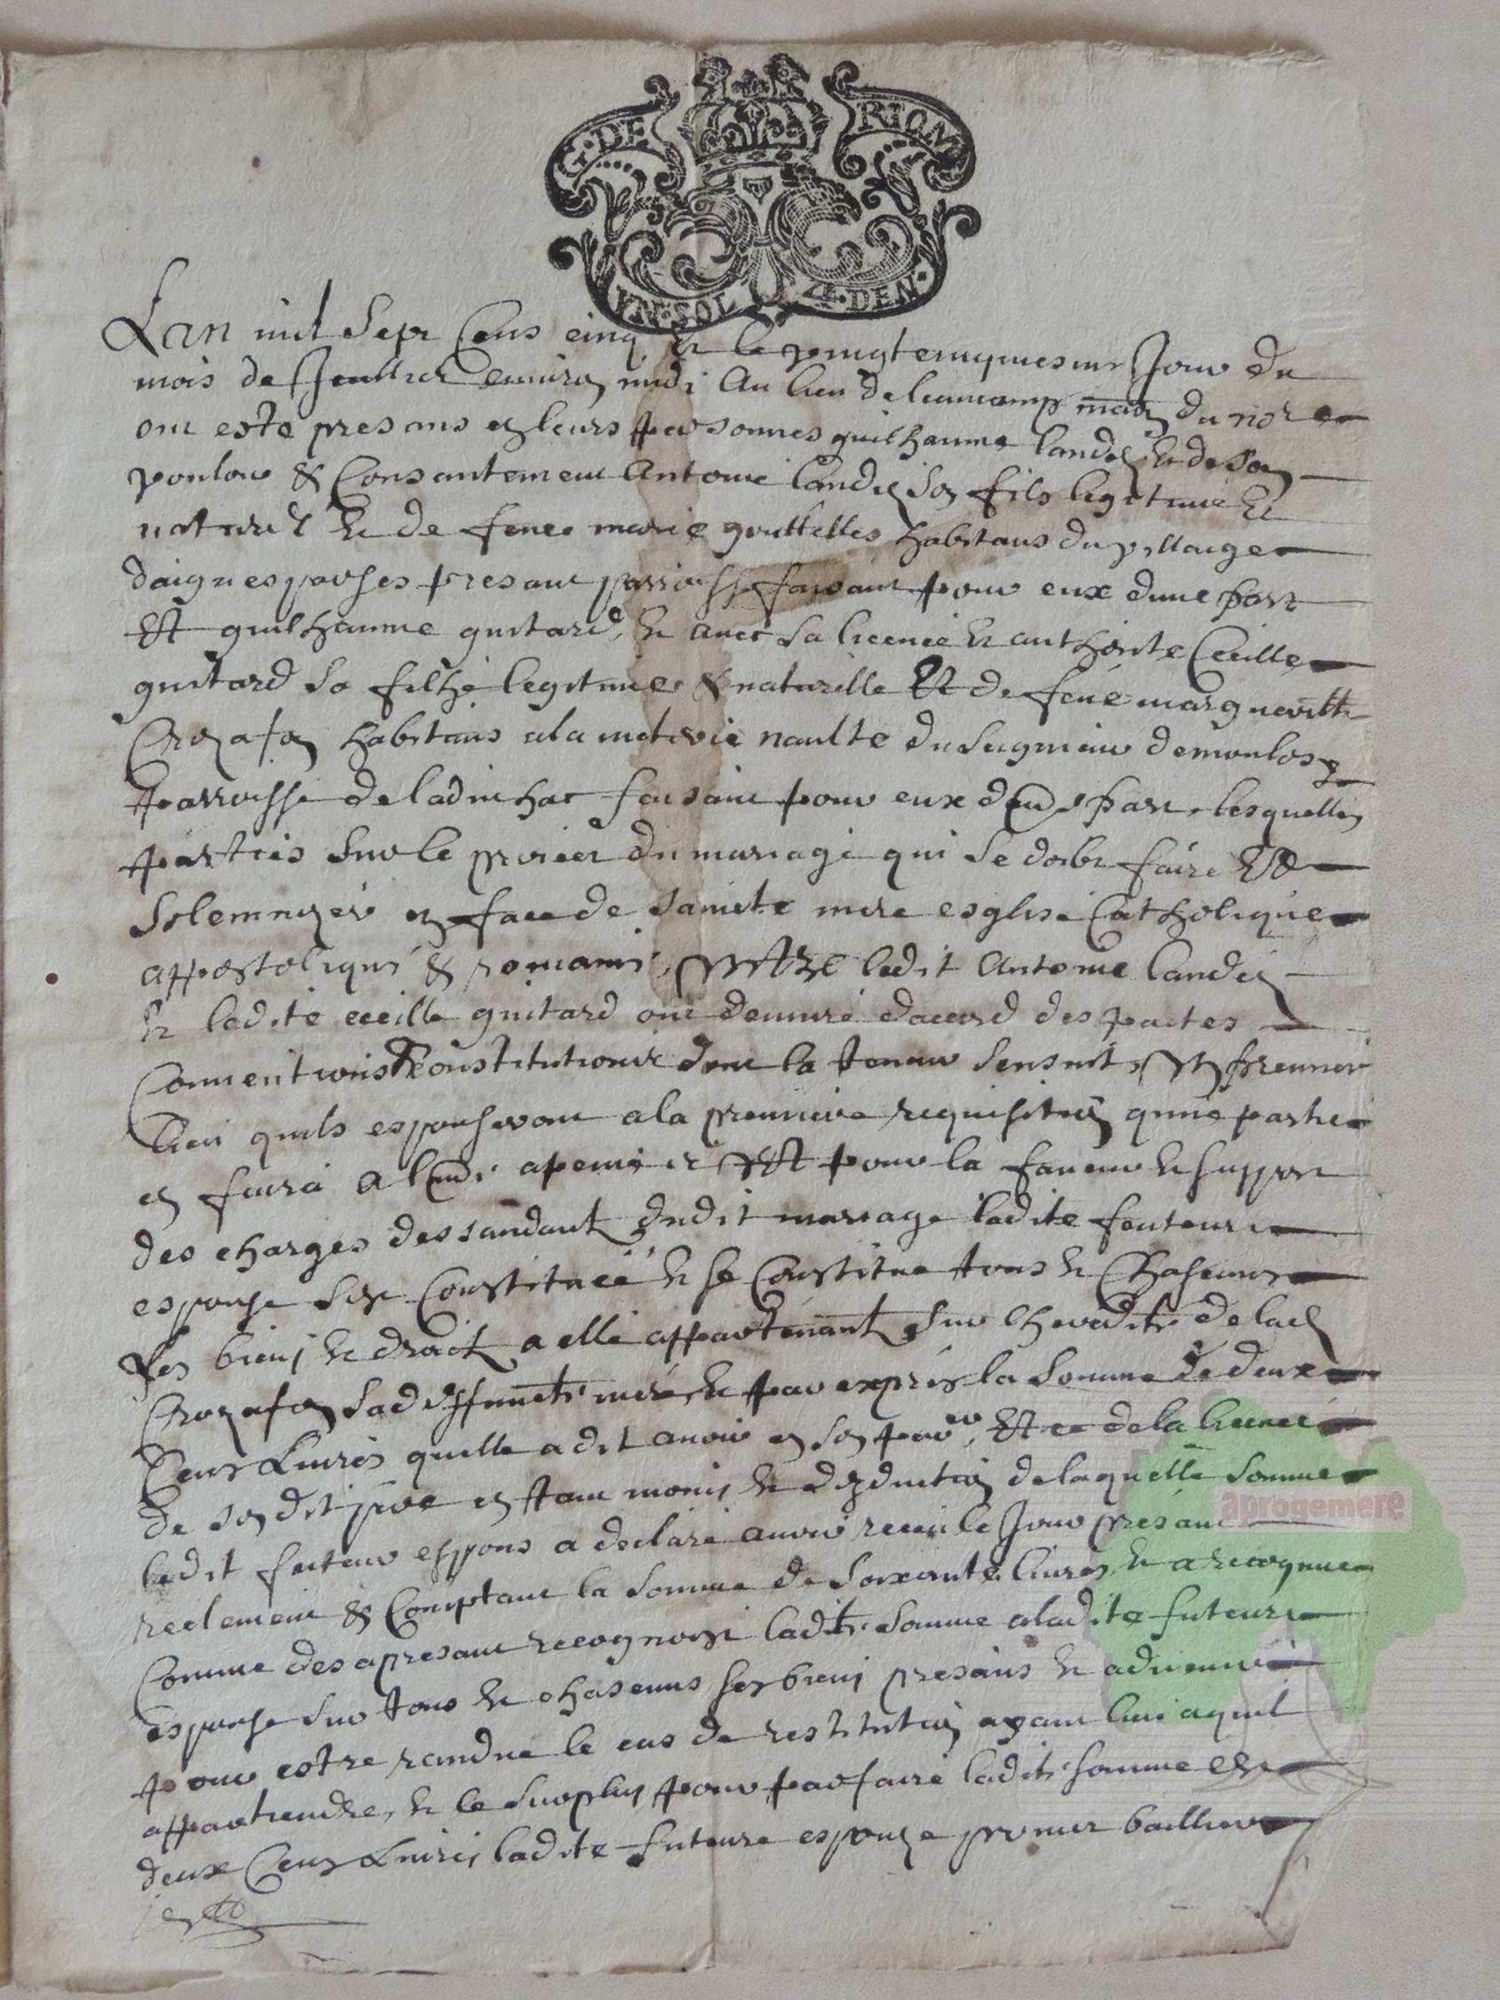 G · DE RIOM
VN · SOL 4 · DEN ·
Lan mil sept cens cinq & le vingt cinquiesme Jour du
mois de Jeullier environ midi au lieu de leaucamp du
ont este presans en leurs personnes guilhaume landes & de son
voulour & Consantement Antoine landes son fils legitime &
naturel & de feue marie gouttelles habitans du villaige
daiguesparses presant parroisse faisant pour eux dune part
Et guilhaume guitard, & avec sa licence & authorite Cecille
guitard sa filhe legitime & naturelle Et de feue margueritte
Crozafon habitans a la meterie naulte du seigneur de
parroisse de ladinhac faisant pour eux dau part, lesquelles
parties sur le proceer du mariage qui se doibt faire &
Solemnizer en face de saincte mere esglise Catholique
appostolique & romaine, Entre ledit Antoine landes
& ladite cecille guitard ont demuré daccord des pactes
Conventions & Constitutions dont la teneur sensuit, En premier
lieu quils espouseront a la premiere requisition qune partie
en faira a lau a peine & Et pour la faveur & support
des charges dessandant dudit mariage ladite feuteure
espouse sest Constituee & se Constitue tous & Chascuns
ses biens & droictz a elle appartenant sur lheredité de lad
Crozafon sa deffuncte mere, & par exprés la somme de deux
Cens Livres quelle a dit avoir en son pouer, Et ce de la licence
de son dit pere en tant moins & deduction de laquelle somme
ledit futeur espous a declaré avoir receu le Jour presant
reelement & Comptant la somme de soixante livres, & a recognue
Comme des apresant recognoist ladite somme a ladite futeure
espouse sur tous & chascuns ses biens presans & advenir
pour estre randue le cas de restitution ayant lieu a quil
appartiendra, & le surplus pour parfaire ladite somme de
deux Cens Livres ladite futeure espouze promet bailher
aprogemere